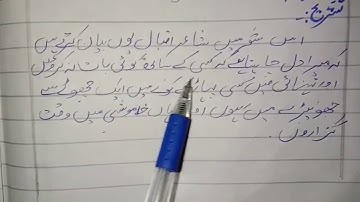 تشریح:۔
اس شعر میں شاعر اقبال یوں بیاں کرتے ہیں
کہ میرا دل چاہتا ہے کہ کسی کے ساتھ کوئی بات نہ ہو
اور تنہائی میں کسی پہاڑ کے کونے میں ایک چھوٹے سے
جھونپڑے میں ہوں اور وہاں خاموشی میں وقت
گزاروں۔